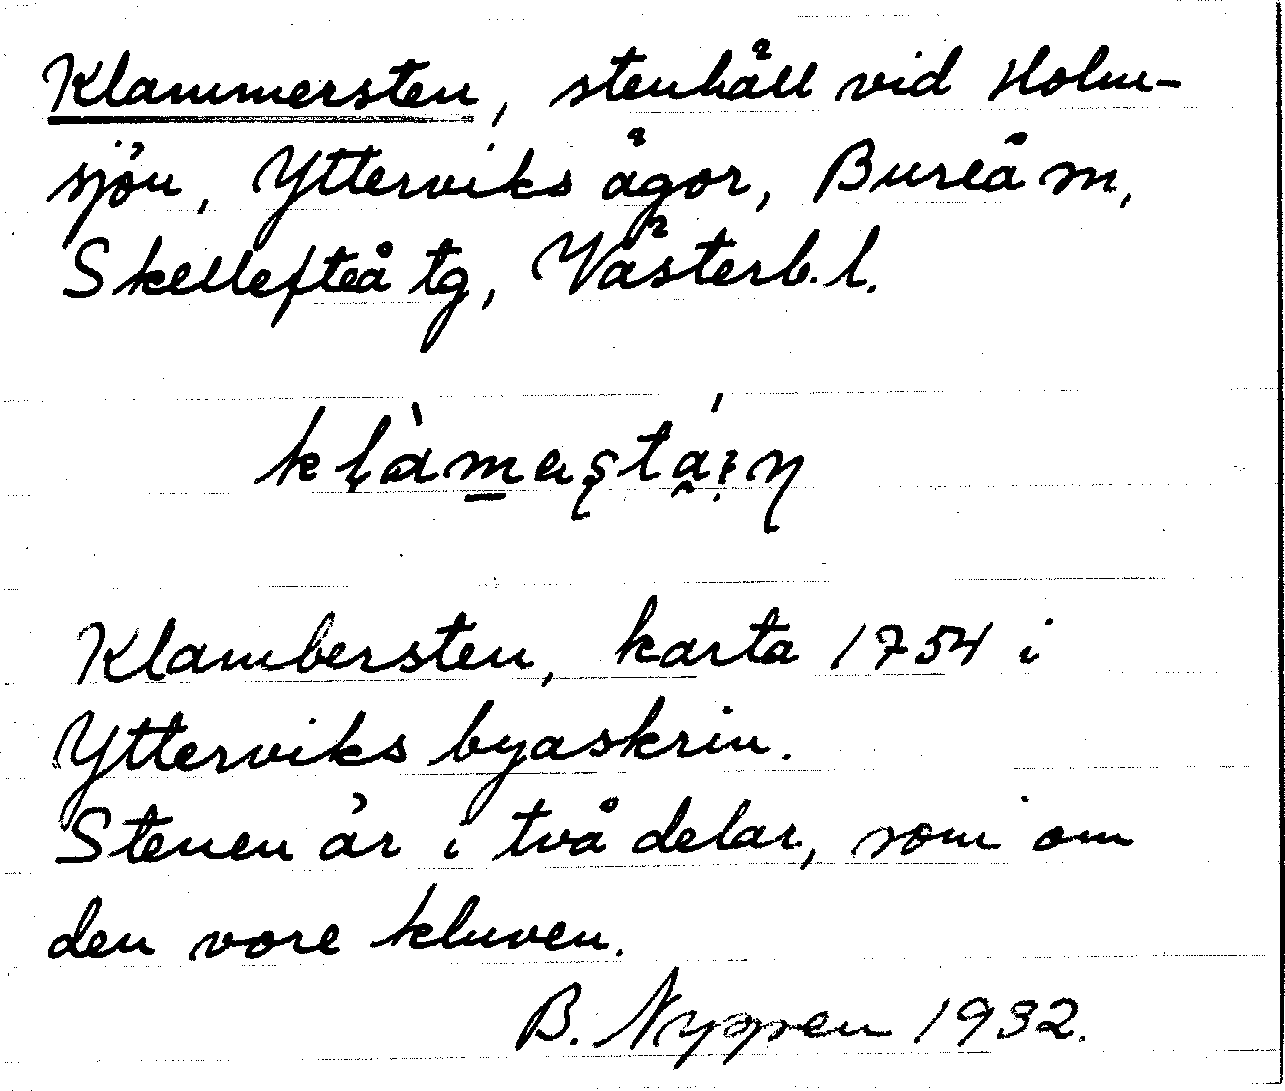 Klammersten, stenhäll vid Holm-
sjön, Ytterviks ägor, Bureå sn,
Skellefteå tg, Västerb. l.
kḷàmeʂtá̰ɪn
Klambersten, karta 1754 i
Ytterviks byaskrin.
Stenen är i två delar, som om
den vore kluven.
B. Nyppen 1932.